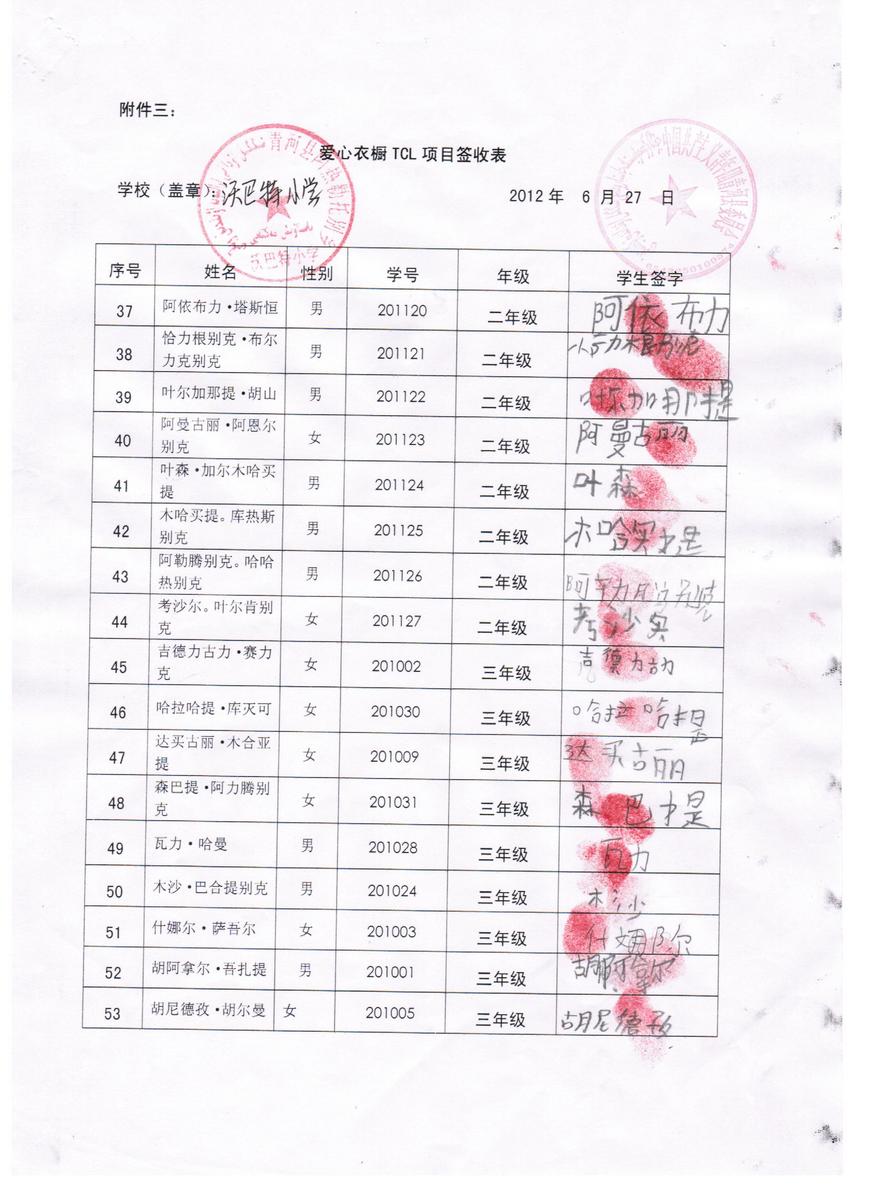 附件三：
爱心衣橱 TCL 项目签收表
学校（盖章）：沃巴特小学 2012 年 6 月 27 日
沃巴特小学
序号 姓名 性别 学号 年级 学生签字
37 阿依布力·塔斯恒 男 201120 二年级 阿依布力
38 恰力根别克·布尔
力克别克 男 201121 二年级
39 叶尔加那提·胡山 男 201122 二年级 叶尔加那提
40 阿曼古丽·阿恩尔
别克 女 201123 二年级 阿曼古丽
41 叶森·加尔木哈买
提 男 201124 二年级 叶森
42 木哈买提。库热斯
别克 男 201125 二年级 木哈买提
43 阿勒腾别克。哈哈
热别克 男 201126 二年级
44 考沙尔。叶尔肯别
克 女 201127 二年级
45 吉德力古力·赛力
克 女 201002 三年级
46 哈拉哈提·库灭可 女 201030 三年级 哈拉哈提
47 达买古丽·木合亚
提 女 201009 三年级 达买古丽
48 森巴提·阿力腾别
克 女 201031 三年级 森巴提
49 瓦力·哈曼 男 201028 三年级 瓦力
50 木沙·巴合提别克 男 201024 三年级 木沙
51 什娜尔·萨吾尔 女 201003 三年级 什娜尔
52 胡阿拿尔·吾扎提 男 201001 三年级 胡阿拿尔
53 胡尼德孜·胡尔曼 女 201005 三年级 胡尼德孜